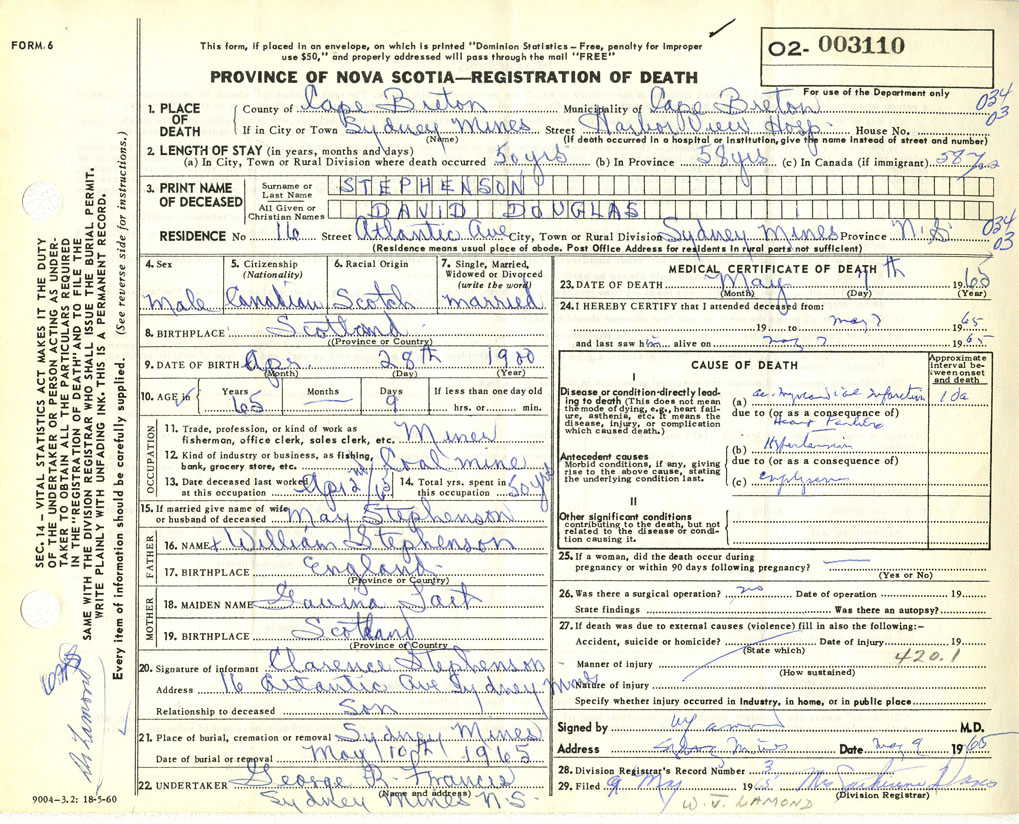 FORM 6
This form, if placed in an envelope, on which is printed "Dominion Statistics – Free, penalty for improper
use $50," and properly addressed will pass through the mail "FREE"
O2- 003110
For use of the Department only
PROVINCE OF NOVA SCOTIA—REGISTRATION OF DEATH
034
03
1. PLACE OF DEATH
County of Cape Breton Municipality of Cape Breton
If in City or Town Sydney Mines Street Harbor View Hosp. House No.
(Name) (If death occurred in a hospital or institution, give the name instead of street and number)
2. LENGTH OF STAY (in years, months and days)
(a) In City, Town or Rural Division where death occurred 50 yrs (b) In Province 58 yrs (c) In Canada (if immigrant) 58
3. PRINT NAME OF DECEASED
Surname or Last Name STEPHENSON
All Given or Christian Names DAVID DOUGLAS
RESIDENCE No 16 Street Atlantic Ave City, Town or Rural Division Sydney Mines Province N.S.
034
03
(Residence means usual place of abode. Post Office Address for residents in rural parts not sufficient)
4. Sex
male
5. Citizenship (Nationality)
Canadian
6. Racial Origin
Scotch
7. Single, Married, Widowed or Divorced (write the word)
married
8. BIRTHPLACE Scotland
(Province or Country)
9. DATE OF BIRTH Apr. 28th 1900
(Month) (Day) (Year)
10. AGE in Years 65 Months Days 9 If less than one day old hrs. or min.
OCCUPATION
11. Trade, profession, or kind of work as
fisherman, office clerk, sales clerk, etc. Miner
12. Kind of industry or business, as fishing,
bank, grocery store, etc. Coal mine
13. Date deceased last worked
at this occupation Apr 2nd/65
14. Total yrs. spent in
this occupation 50 yrs
15. If married give name of wife
or husband of deceased May Stephenson
FATHER
16. NAME William Stephenson
17. BIRTHPLACE England
(Province or Country)
MOTHER
18. MAIDEN NAME
19. BIRTHPLACE Scotland
(Province or Country)
20. Signature of informant Clarence Stephenson
Address 16 Atlantic Ave Sydney Mines
Relationship to deceased Son
21. Place of burial, cremation or removal Sydney Mines
Date of burial or removal May 10th 1965
22. UNDERTAKER George R. Francis
(Name and address)
Sydney Mines N.S.
9004–3.2: 18-5-60
MEDICAL CERTIFICATE OF DEATH
23. DATE OF DEATH May 7th 1965
(Month) (Day) (Year)
24. I HEREBY CERTIFY that I attended deceased from:
19 to May 7 1965
and last saw him alive on May 7 1965
CAUSE OF DEATH
Approximate interval between onset and death
I
Disease or condition directly leading to death (This does not mean the mode of dying, e.g., heart failure, asthenia, etc. It means the disease, injury, or complication which caused death.)
(a) ac. myocardial infarction
due to (or as a consequence of)
Heart Failure
(b) Hypertension
due to (or as a consequence of)
(c)
Antecedent causes
Morbid conditions, if any, giving rise to the above cause, stating the underlying condition last.
II
Other significant conditions
contributing to the death, but not related to the disease or condition causing it.
25. If a woman, did the death occur during
pregnancy or within 90 days following pregnancy?
(Yes or No)
26. Was there a surgical operation? no Date of operation 19
State findings Was there an autopsy?
27. If death was due to external causes (violence) fill in also the following:–
Accident, suicide or homicide? Date of injury 19
(State which)
420.1
Manner of injury
(How sustained)
Nature of injury
Specify whether injury occurred in industry, in home, or in public place
Signed by M.D.
Address Sydney Mines Date May 9 1965
28. Division Registrar's Record Number 3
29. Filed 9 May 1965
(Division Registrar)
W. V. LAMOND
SEC. 14 – VITAL STATISTICS ACT MAKES IT THE DUTY
OF THE UNDERTAKER OR PERSON ACTING AS UNDER-
TAKER TO OBTAIN ALL THE PARTICULARS REQUIRED
IN THE "REGISTRATION OF DEATH" AND TO FILE THE
SAME WITH THE DIVISION REGISTRAR WHO SHALL ISSUE THE BURIAL PERMIT.
WRITE PLAINLY WITH UNFADING INK. THIS IS A PERMANENT RECORD.
Every item of information should be carefully supplied. (See reverse side for instructions.)
Dr Lamond